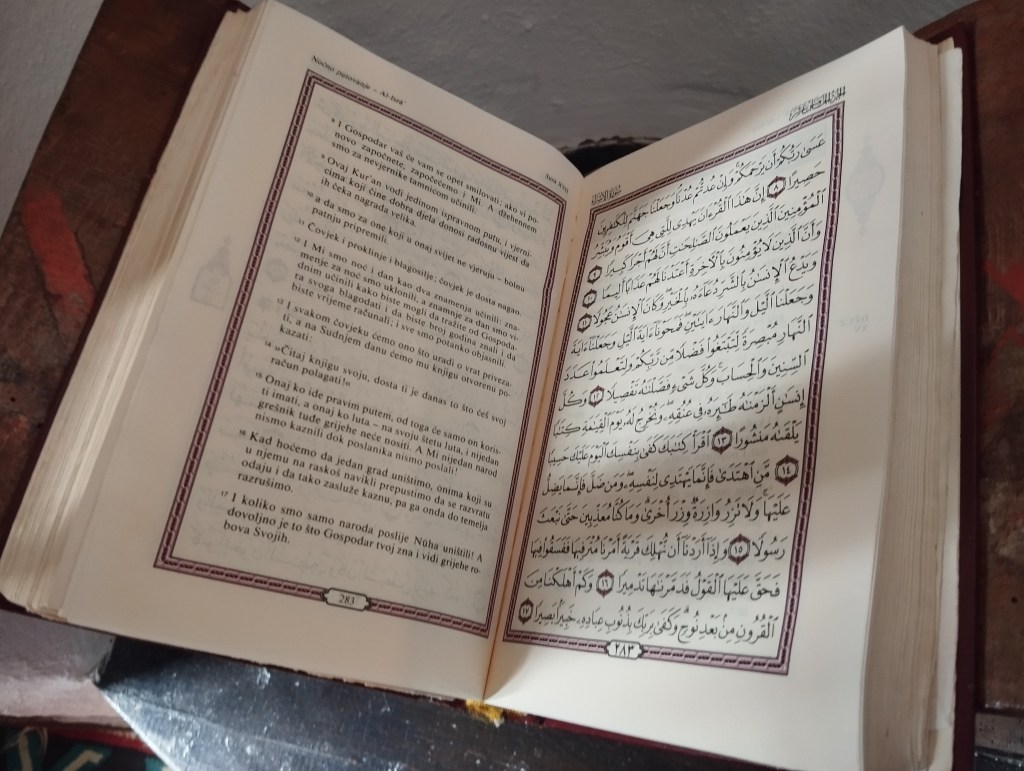 Noćno putovanje – Al-Isrā'
Sura XVII
⁸ I Gospodar vaš će vam se opet smilovati; ako vi po-
novo započnete, započećemo i Mi. A džehennem
smo za nevjernike tamnicom učinili.
⁹ Ovaj Kur'an vodi jedinom ispravnom putu, i vjerni-
cima koji čine dobra djela donosi radosnu vijest da
ih čeka nagrada velika.
¹⁰ a da smo za one koji u onaj svijet ne vjeruju – bolnu
patnju pripremili.
¹¹ Čovjek i proklinje i blagosilje; čovjek je doista nagao.
¹² I Mi smo noć i dan kao dva znamenja učinili: zna-
menje za noć smo uklonili, a znamnje za dan smo vi-
dnim učinili kako biste mogli da tražite od Gospoda-
ra svoga blagodati i da biste broj godina znali i da
biste vrijeme računali; i sve smo potanko objasnili.
¹³ I svakom čovjeku ćemo ono što uradi o vrat priveza-
ti, a na Sudnjem danu ćemo mu knjigu otvorenu po-
kazati:
¹⁴ »Čitaj knjigu svoju, dosta ti je danas to što ćeš svoj
račun polagati!«
¹⁵ Onaj ko ide pravim putem, od toga će samo on koris-
ti imati, a onaj ko luta – na svoju štetu luta, i nijedan
grešnik tuđe grijehe neće nositi. A Mi nijedan narod
nismo kaznili dok poslanika nismo poslali!
¹⁶ Kad hoćemo da jedan grad uništimo, onima koji su
u njemu na raskoš navikli prepustimo da se razvratu
odaju i da tako zasluže kaznu, pa ga onda do temelja
razrušimo.
¹⁷ I koliko smo samo naroda poslije Nūha uništili! A
dovoljno je to što Gospodar tvoj zna i vidi grijehe ro-
bova Svojih.
283
الجزء الخامس عشر
سورة الإسراء
عَسَىٰ رَبُّكُمْ أَن يَرْحَمَكُمْ ۚ وَإِنْ عُدتُّمْ عُدْنَا ۘ وَجَعَلْنَا جَهَنَّمَ لِلْكَٰفِرِينَ
حَصِيرًا ٨ إِنَّ هَٰذَا ٱلْقُرْءَانَ يَهْدِى لِلَّتِى هِىَ أَقْوَمُ وَيُبَشِّرُ
ٱلْمُؤْمِنِينَ ٱلَّذِينَ يَعْمَلُونَ ٱلصَّٰلِحَٰتِ أَنَّ لَهُمْ أَجْرًا كَبِيرًا ٩
وَأَنَّ ٱلَّذِينَ لَا يُؤْمِنُونَ بِٱلْءَاخِرَةِ أَعْتَدْنَا لَهُمْ عَذَابًا أَلِيمًا ١٠
وَيَدْعُ ٱلْإِنسَٰنُ بِٱلشَّرِّ دُعَآءَهُۥ بِٱلْخَيْرِ ۖ وَكَانَ ٱلْإِنسَٰنُ عَجُولًا ١١
وَجَعَلْنَا ٱلَّيْلَ وَٱلنَّهَارَ ءَايَتَيْنِ ۖ فَمَحَوْنَآ ءَايَةَ ٱلَّيْلِ وَجَعَلْنَآ ءَايَةَ
ٱلنَّهَارِ مُبْصِرَةً لِّتَبْتَغُوا۟ فَضْلًا مِّن رَّبِّكُمْ وَلِتَعْلَمُوا۟ عَدَدَ
ٱلسِّنِينَ وَٱلْحِسَابَ ۚ وَكُلَّ شَىْءٍ فَصَّلْنَٰهُ تَفْصِيلًا ١٢ وَكُلَّ
إِنسَٰنٍ أَلْزَمْنَٰهُ طَٰٓئِرَهُۥ فِى عُنُقِهِۦ ۖ وَنُخْرِجُ لَهُۥ يَوْمَ ٱلْقِيَٰمَةِ كِتَٰبًا
يَلْقَىٰهُ مَنشُورًا ١٣ ٱقْرَأْ كِتَٰبَكَ كَفَىٰ بِنَفْسِكَ ٱلْيَوْمَ عَلَيْكَ حَسِيبًا
١٤ مَّنِ ٱهْتَدَىٰ فَإِنَّمَا يَهْتَدِى لِنَفْسِهِۦ ۖ وَمَن ضَلَّ فَإِنَّمَا يَضِلُّ
عَلَيْهَا ۚ وَلَا تَزِرُ وَازِرَةٌ وِزْرَ أُخْرَىٰ ۗ وَمَا كُنَّا مُعَذِّبِينَ حَتَّىٰ نَبْعَثَ
رَسُولًا ١٥ وَإِذَآ أَرَدْنَآ أَن نُّهْلِكَ قَرْيَةً أَمَرْنَا مُتْرَفِيهَا فَفَسَقُوا۟ فِيهَا
فَحَقَّ عَلَيْهَا ٱلْقَوْلُ فَدَمَّرْنَٰهَا تَدْمِيرًا ١٦ وَكَمْ أَهْلَكْنَا مِنَ
ٱلْقُرُونِ مِنۢ بَعْدِ نُوحٍ ۗ وَكَفَىٰ بِرَبِّكَ بِذُنُوبِ عِبَادِهِۦ خَبِيرًۢا بَصِيرًا ١٧
٢٨٣